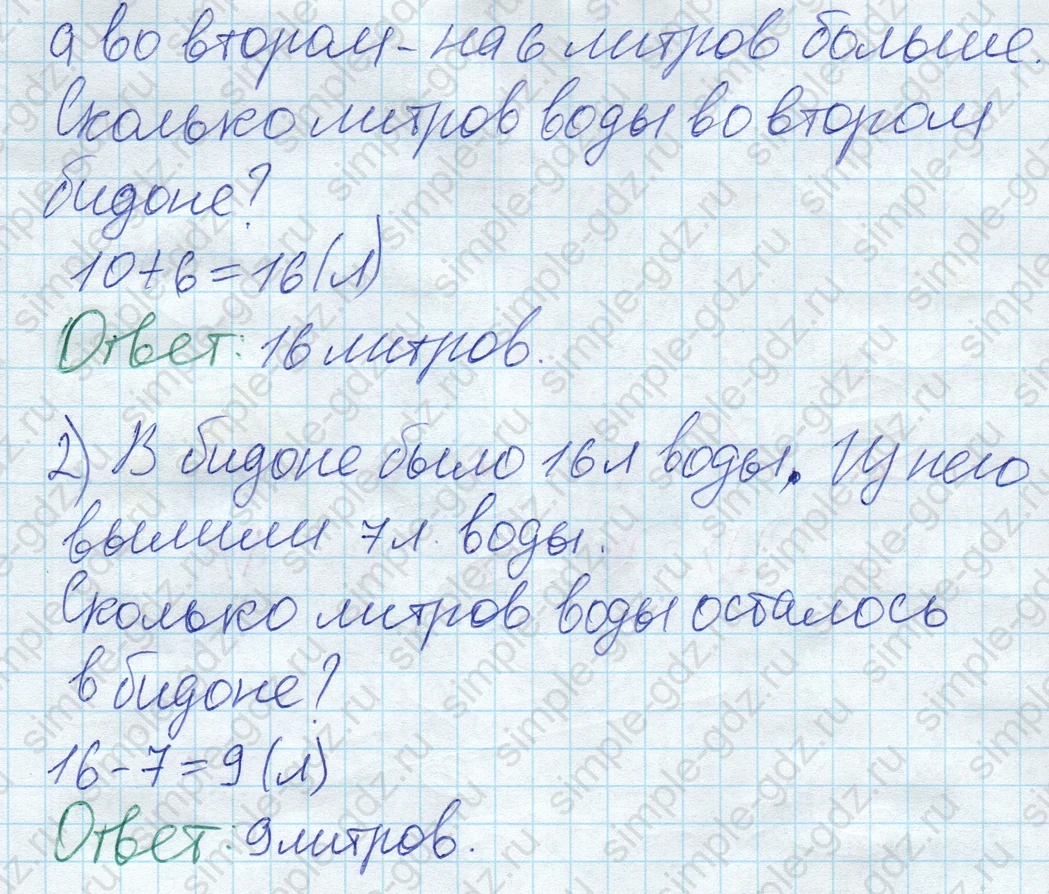 а во втором - на 6 литров больше.
Сколько литров воды во втором
бидоне?
10+6=16(л)
Ответ: 16 литров.
2) В бидоне было 16л воды. Из него
вылили 7л. воды.
Сколько литров воды осталось
в бидоне?
16-7=9(л)
Ответ: 9литров.